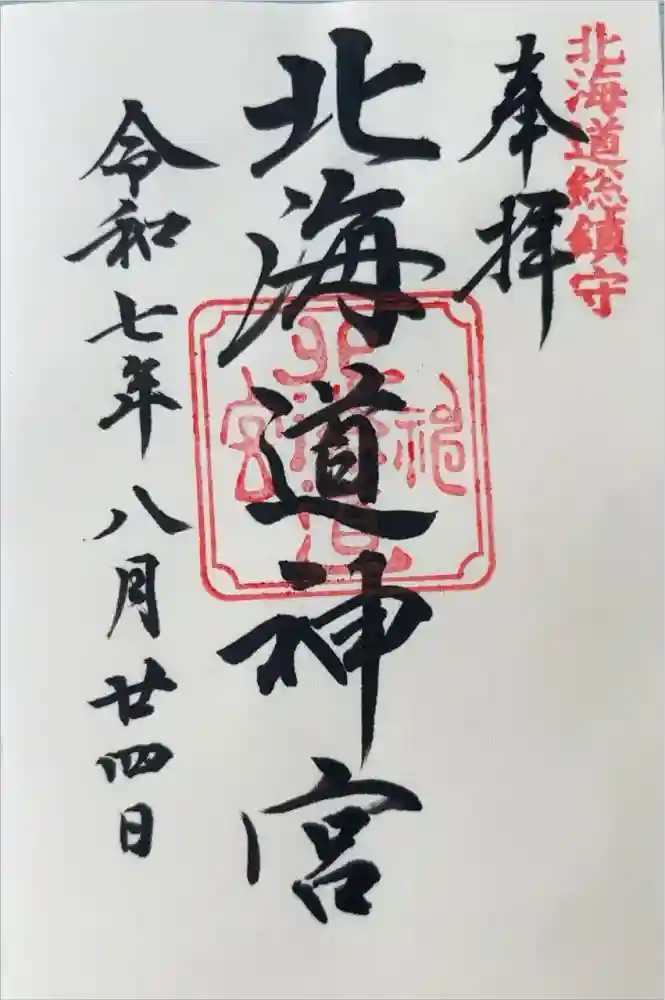 北海道総鎮守
奉拝
北海道神宮
令和七年八月廿四日